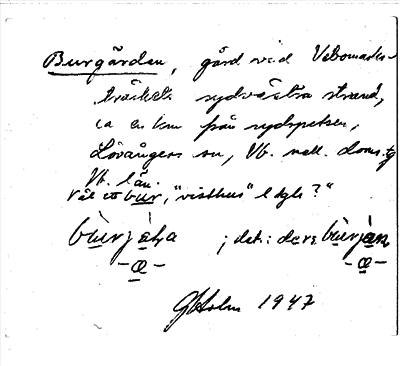 Burgården, gård vid Vebomarks-
träskets sydvästra strand,
ca en km från sydspetsen,
Lövångers sn, Vb. mell. doms. tg
Vb. län.
Väl ett bur, "visthus" l dyl. ?"
bùrjàṇa ; det: dær bùrjàn
-æ- -æ-
GHolm 1947